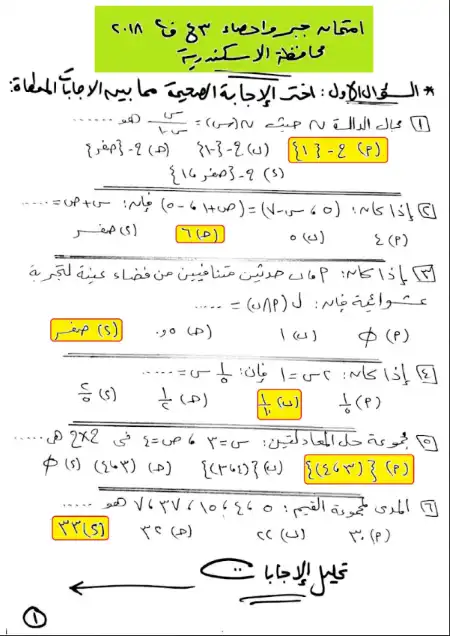 امتحان جبر وإحصاء ٣ع ف٢ ٢٠١٨
محافظة الاسكندرية
* السؤال الأول: اختر الإجابة الصحيحة مما بين الاجابات المعطاة:
١ مجال الدالة ن حيث ن(س) = س / س-١ هو ......
(أ) ح-{١} (ب) ح-{-١} (حـ) ح-{صفر}
(د) ح-{صفر، ١}
٢ إذا كان: (٥، س-٧) = (ص+١، -٥) فإن: س+ص = ......
(أ) ٤ (ب) ٥ (حـ) ٦ (د) صفر
٣ إذا كان: أ، ب حدثين متنافيين من فضاء عينة لتجربة
عشوائية فإن: ل(أ∩ب) = ......
(أ) ∅ (ب) ١ (حـ) ٥و. (د) صفر
٤ إذا كان: ٢س = ١ فإن: ١/٥ س = ......
(أ) ١/٥ (ب) ١/١٠ (حـ) ١/٢ (د) ٢/٥
٥ مجموعة حل المعادلتين: س=٣، ص=٤ فى ح×ح هى ......
(أ) {(٣، ٤)} (ب) {(٤، ٣)} (حـ) (٣، ٤) (د) ∅
٦ المدى لمجموعة القيم: ٥، ٤، ١٥، ٣٧، ٧ هو ......
(أ) ٣٠ (ب) ٢٢ (حـ) ٣٢ (د) ٣٣
تحليل الإجابات
١